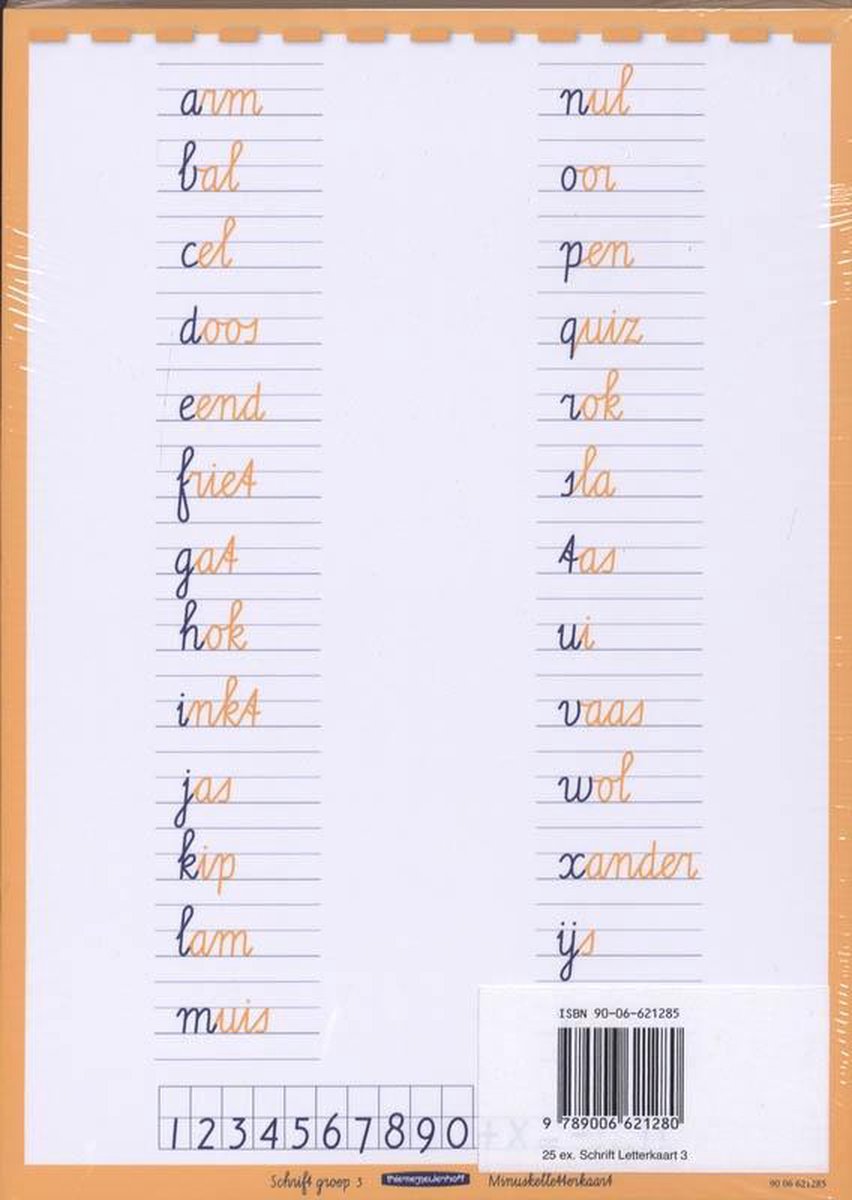 arm
bal
cel
doos
eend
friet
gat
hok
inkt
jas
kip
lam
muis
nul
oor
pen
quiz
rok
sla
tas
ui
vaas
wol
xander
ijs
1 2 3 4 5 6 7 8 9 0
ISBN 90-06-621285
9 789006 621280
25 ex. Schrift Letterkaart 3
Schrift groep 3 thiememeulenhoff Minuskelletterkaart 90 06 621285